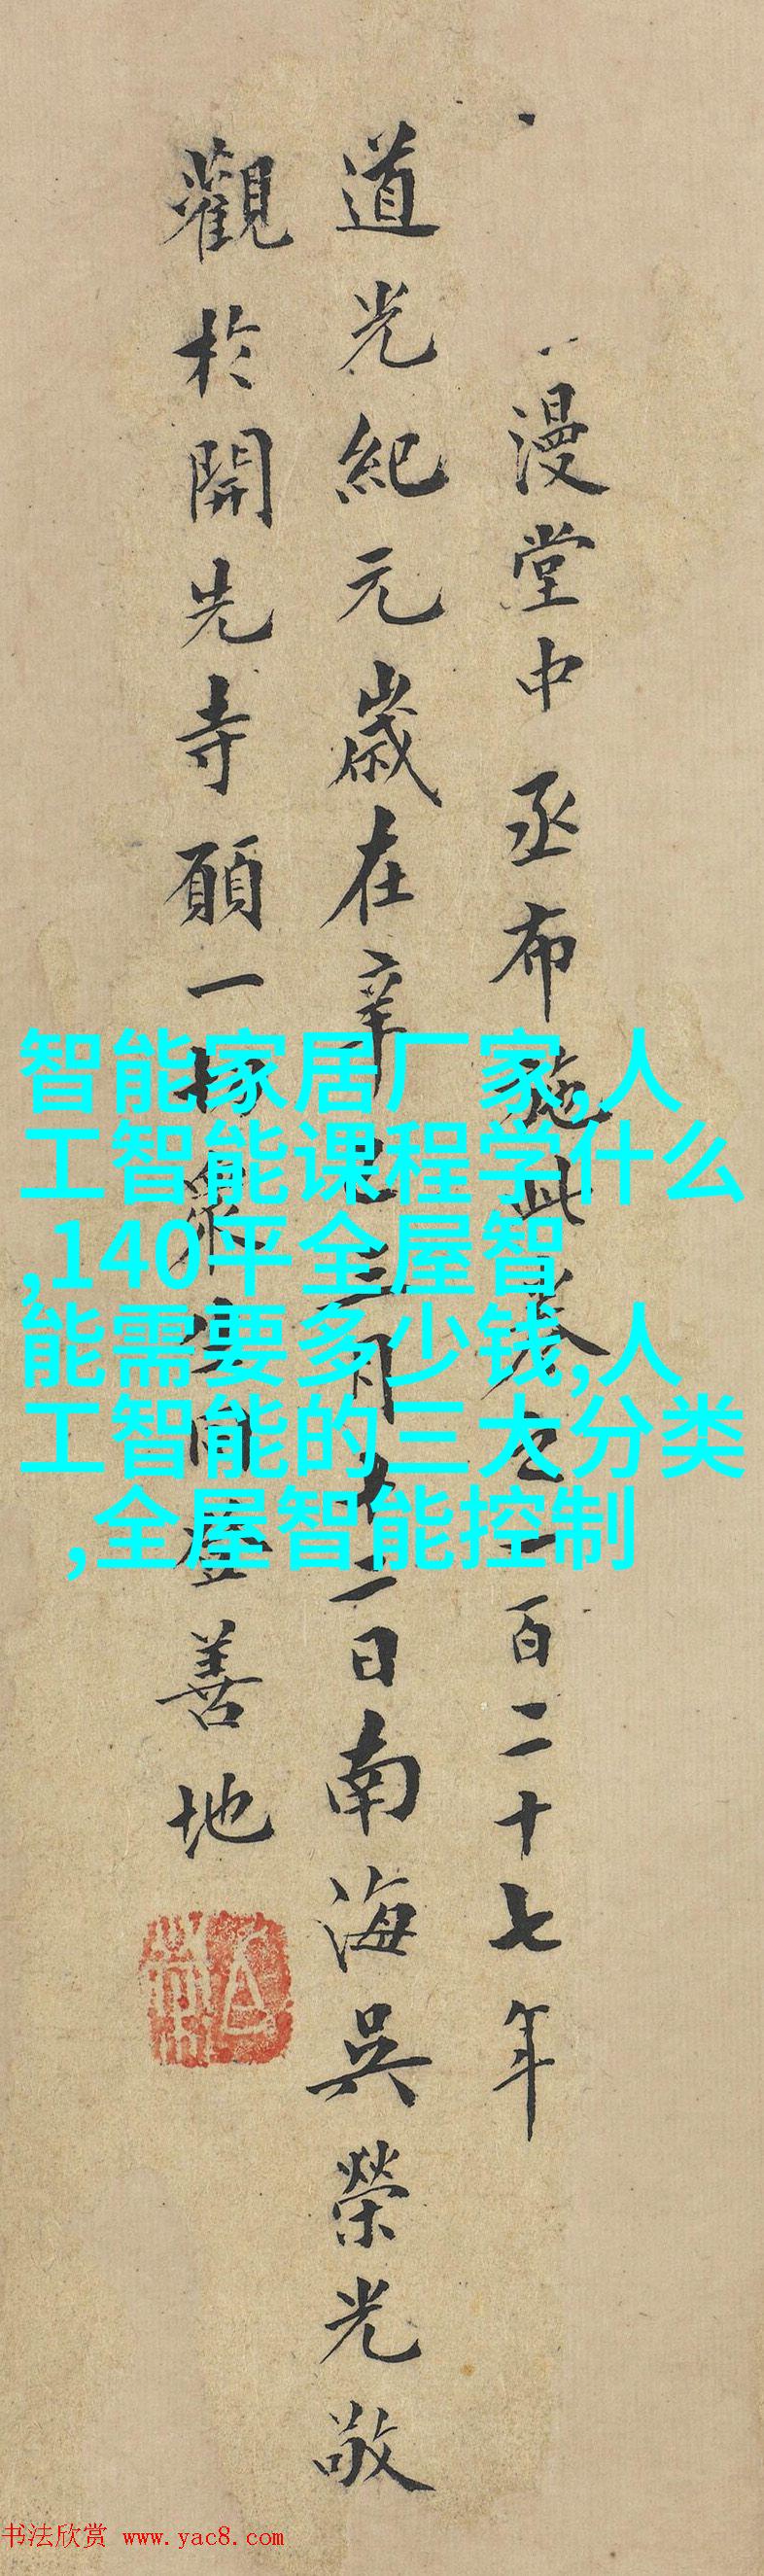 漫堂中丞布施此卷之一百二十七年
道光紀元歲在辛巳三月十二日南海吳榮光敬
觀於開先寺願一切眾生同登善地
智能家居厂家,人
工智能课程学什么
,140平全屋智
能需要多少钱,人
工智能的三大分类
,全屋智能控制
书法欣赏 www.yac8.com